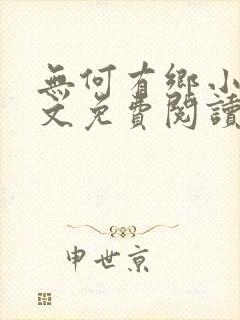 無何有鄉小
文免費閱讀
申世京